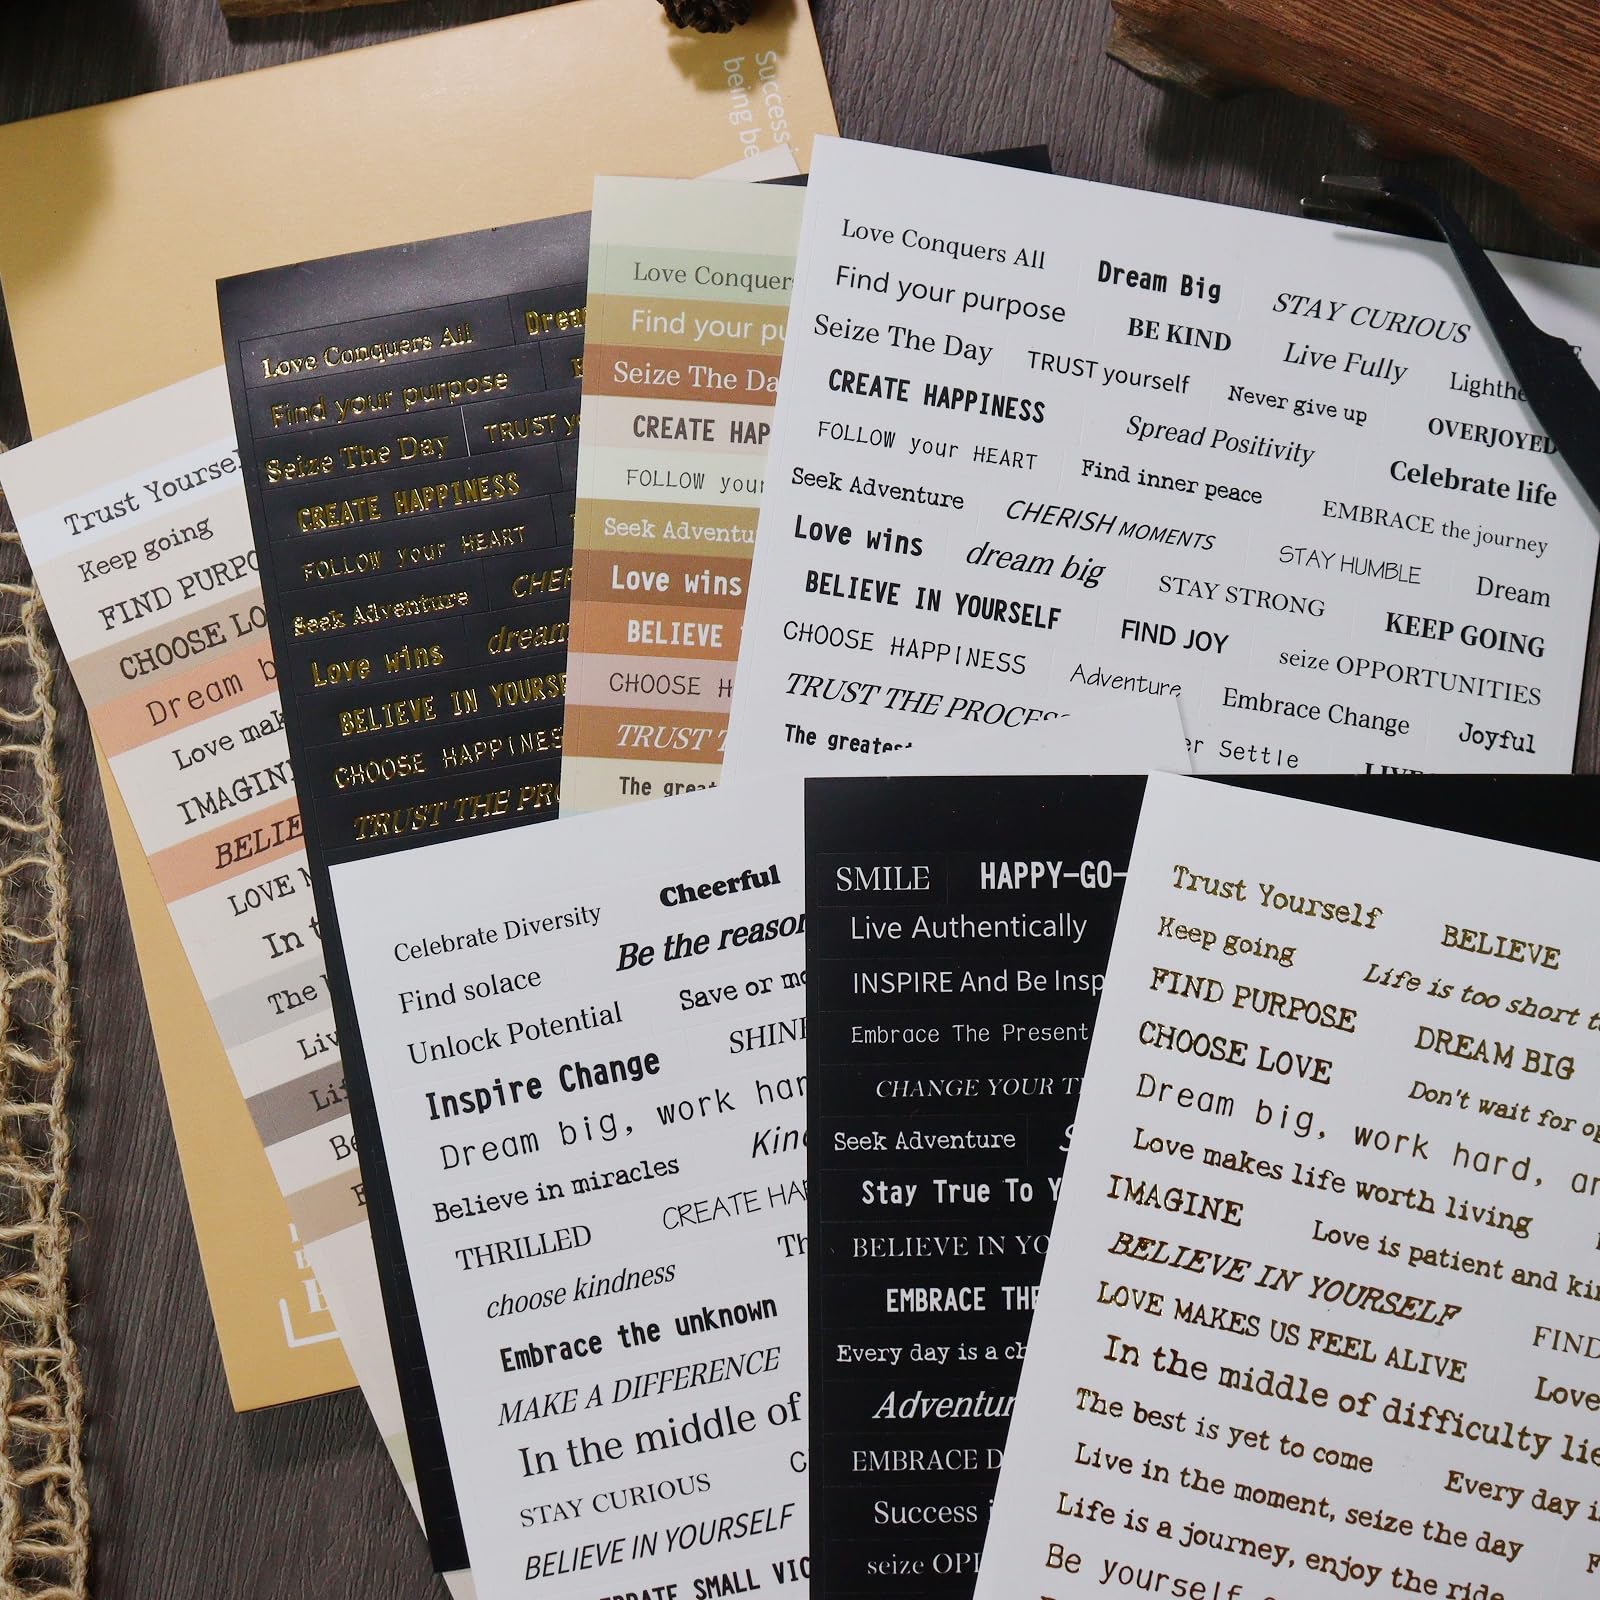 Success
being be
Trust Yoursel
Keep going
FIND PURPO
CHOOSE LO
Dream b
Love mak
IMAGIN
BELIE
LOVE
In t
The
Liv
Li
Be
Love Conquers All Drea
Find your purpose
Seize The Day TRUST y
CREATE HAPPINESS
FOLLOW your HEART
Seek Adventure CHER
Love wins dream
BELIEVE IN YOURSE
CHOOSE HAPPINES
TRUST THE PRO
Love Conquer
Find your pu
Seize The Da
CREATE HAP
FOLLOW your
Seek Adventu
Love wins
BELIEVE
CHOOSE H
TRUST T
The great
Love Conquers All Dream Big STAY CURIOUS
Find your purpose BE KIND Live Fully Lighthe
Seize The Day TRUST yourself Never give up OVERJOYED
CREATE HAPPINESS Spread Positivity Celebrate life
FOLLOW your HEART Find inner peace EMBRACE the journey
Seek Adventure CHERISH MOMENTS STAY HUMBLE Dream
Love wins dream big STAY STRONG KEEP GOING
BELIEVE IN YOURSELF FIND JOY seize OPPORTUNITIES
CHOOSE HAPPINESS Adventure Embrace Change Joyful
TRUST THE PROCESS er Settle LIVE
The greatest
Celebrate Diversity Cheerful
Find solace Be the reason
Unlock Potential Save or mo
Inspire Change SHINE
Dream big, work har
Believe in miracles Kind
THRILLED CREATE HAP
choose kindness Th
Embrace the unknown
MAKE A DIFFERENCE
In the middle of
STAY CURIOUS C
BELIEVE IN YOURSELF
BRATE SMALL VIC
SMILE HAPPY-GO-
Live Authentically
INSPIRE And Be Insp
Embrace The Present
CHANGE YOUR T
Seek Adventure S
Stay True To Y
BELIEVE IN YO
EMBRACE THE
Every day is a ch
Adventur
EMBRACE D
Success i
seize OPP
Trust Yourself BELIEVE
Keep going Life is too short t
FIND PURPOSE DREAM BIG
CHOOSE LOVE Don't wait for op
Dream big, work hard, an
Love makes life worth living
IMAGINE Love is patient and kin
BELIEVE IN YOURSELF FIND
LOVE MAKES US FEEL ALIVE Love
In the middle of difficulty lie
The best is yet to come Every day i
Live in the moment, seize the day F
Life is a journey, enjoy the ride
Be yourself